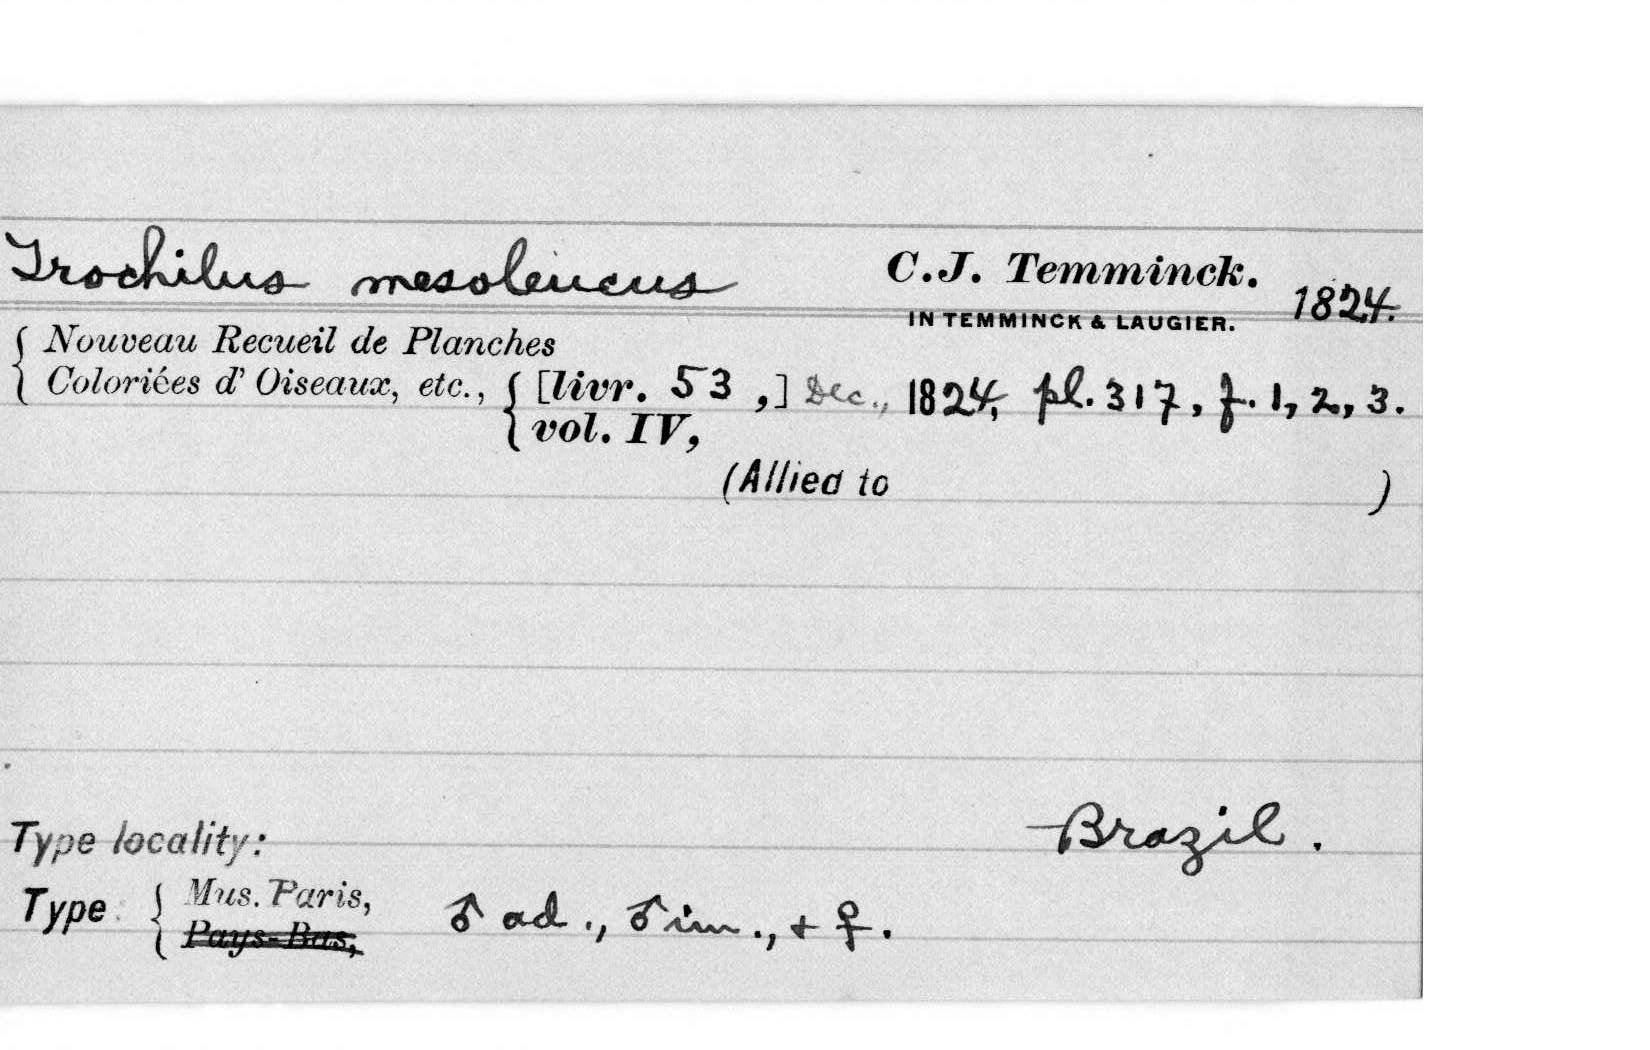 Trochilus mesoleucus C.J. Temminck. 1824.
IN TEMMINCK & LAUGIER.
{ Nouveau Recueil de Planches
Coloriées d' Oiseaux, etc., { [livr. 53 ,] Dec., 1824, pl. 317, f. 1, 2, 3.
vol. IV,
(Allied to )
Type locality: Brazil.
Type { Mus. Paris, ♂ ad., ♂ im., + ♀.
Pays-Bas,